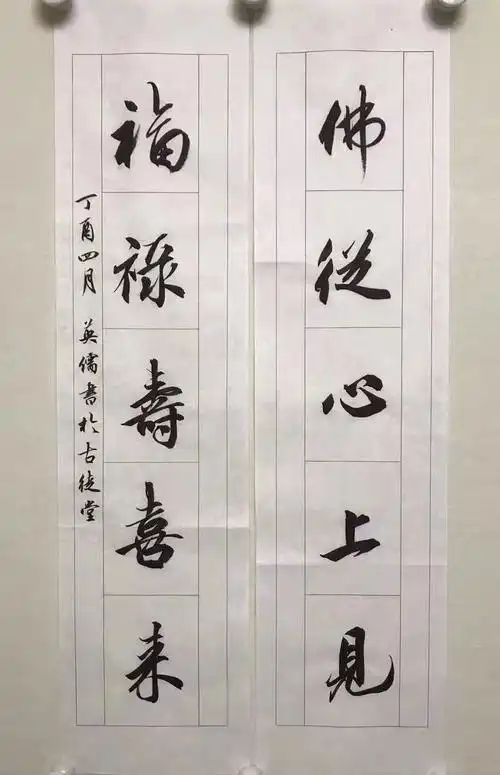 佛從心上見
福祿壽喜来
丁酉四月 英儒書於古徒堂